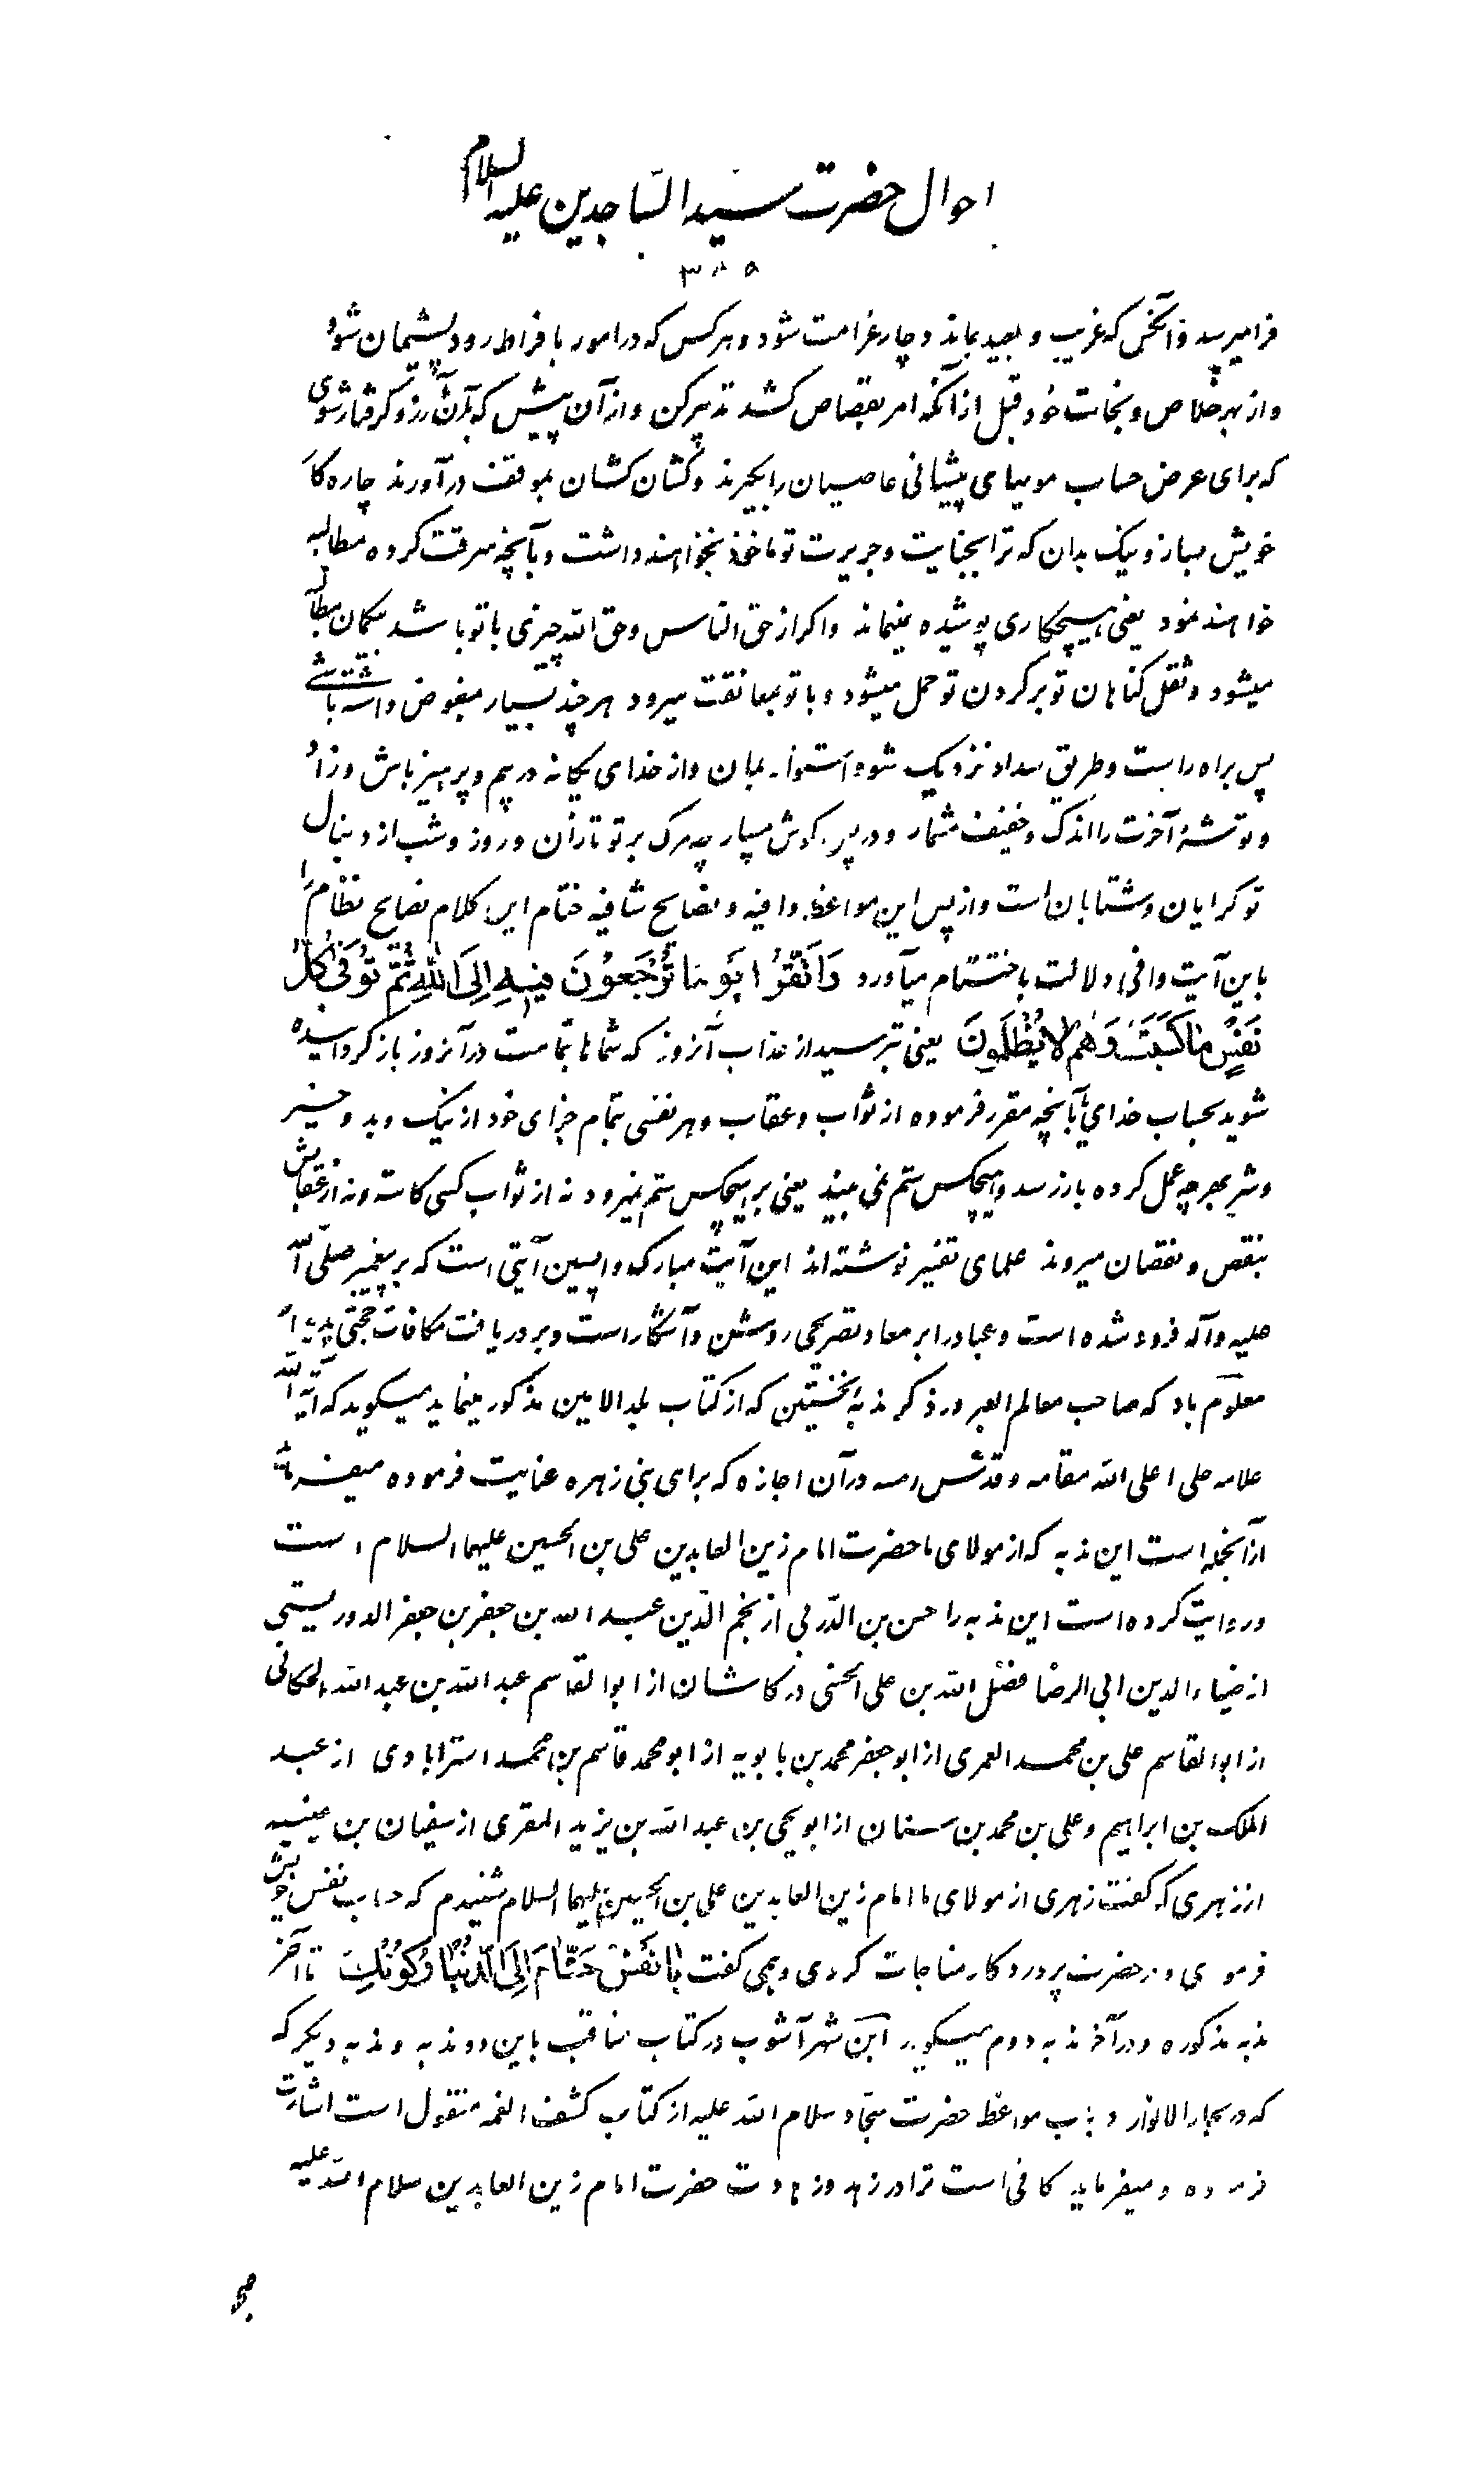 احوال حضرت سید الساجدین علیه السلام
۳۸۵
فرا میرسد و آنکس که غریب و بعید بماند دچار غرامت شود و هر کس که در امور بافراط رود پشیمان شود
و از بهر خلاص و نجات خود قبل از آنکه امر بقصاص کشد تدبیر کن و از آن پیش که بآن روز گرفتار شوی
که برای عرض حساب موبهای پیشانی عاصیان را بگیرند و کشان کشان بموقف در آورند چاره کار
خویش بساز و نیک بدان که ترا بجنایت و جریرت تو ماخوذ بخواهند داشت و بآنچه سرقت کرده مطالبه
خواهند نمود یعنی هیچکاری پوشیده نمیماند و اگر از حق الناس و حق الله چیزی با تو باشد بیگمان مطالبه
میشود و ثقل گناهان تو بر گردن تو حمل میشود و با تو بمعانقت میرود هر چند بسیار مبغوض داشته باشی
پس براه راست و طریق سداد نزدیک شو و استوار بمان و از خدای یگانه در بیم و پرهیز باش و زاد
و توشهٔ آخرت را اندک و خفیف مشمار و در پی کوش مسپار چه مرگ بر تو تازان و روز و شب از دنبال
تو گرایان و شتابان است و از پس این مواعظ وافیه و نصایح شافیه ختام این کلام نصایح نظام را
باین آیت وافی دلالت باختتام میآورد وَاتَّقُوا یَوْمًا تُرْجَعُونَ فِیهِ اِلَی اللهِ ثُمَّ تُوَفّٰی کُلُّ
نَفْسٍ مَا کَسَبَتْ وَهُمْ لَا یُظْلَمُونَ یعنی بترسید از عذاب آنروز که شماها بتمامت در آنروز باز گردانیده
شوید بحساب خدای بآنچه مقرر فرموده از ثواب و عقاب و هر نفسی بتمام جزای خود از نیک و بد و خیر
و شر بهر چه عمل کرده باز رسد و هیچکس ستم نمی بیند یعنی بر هیچکس ستم نمیرود نه از ثواب کسی کاسته و نه از عقابش
بنقص و نقصان میروند علمای تفسیر نوشته اند این آیت مبارکه واپسین آیتی است که بر پیغمبر صلی الله
علیه و آله فرود شده است و عباد را بر معاد تصریحی روشن و آشکار است و بر دریافت مکافات حجتی پدیدار
معلوم باد که صاحب معالم العبر در ذکر ندبهٔ نخستین که از کتاب بلد الامین مذکور مینماید میگوید که آیة الله
علامه حلی اعلی الله مقامه و قدس رمسه در آن اجازه که برای بنی زهره عنایت فرموده میفرماید
از آنجمله است این ندبه که از مولای ما حضرت امام زین العابدین علی بن الحسین علیهما السلام است
و روایت کرده است این ندبه را حسن بن الدربی از نجم الدین عبد الله بن جعفر بن جعفر الدوریستی
از ضیاء الدین ابی الرضا فضل الله بن علی الحسنی در کاشان از ابو القاسم عبد الله بن عبد الله الحسکانی
از ابو القاسم علی بن محمد العمری از ابو جعفر محمد بن بابویه از ابو محمد قاسم بن محمد استرابادی از عبد
الملک بن ابراهیم و علی بن محمد بن سنان از ابو یحیی بن عبد الله بن یزید المقری از سفیان بن عیینه
از زهری که گفت زهری از مولای ما امام زین العابدین علی بن الحسین علیهما السلام شنیدم که حساب نفس خویش
فرمودی و در حضرت پروردگار مناجات کردی و همی گفت یَا نَفْسُ حَتّامَ اِلَی الدُّنْیَا رُکُونُكِ تا آخر
ندبه مذکوره و در آخر ندبه دوم میگوید ابن شهر آشوب در کتاب مناقب باین دو ندبه و ندبه دیگر که
که در بحار الانوار در باب مواعظ حضرت سجاد سلام الله علیه از کتاب کشف الغمه منقول است اشارت
فرموده و میفرماید کافی است ترا در زهد و زهادت حضرت امام زین العابدین سلام الله علیه